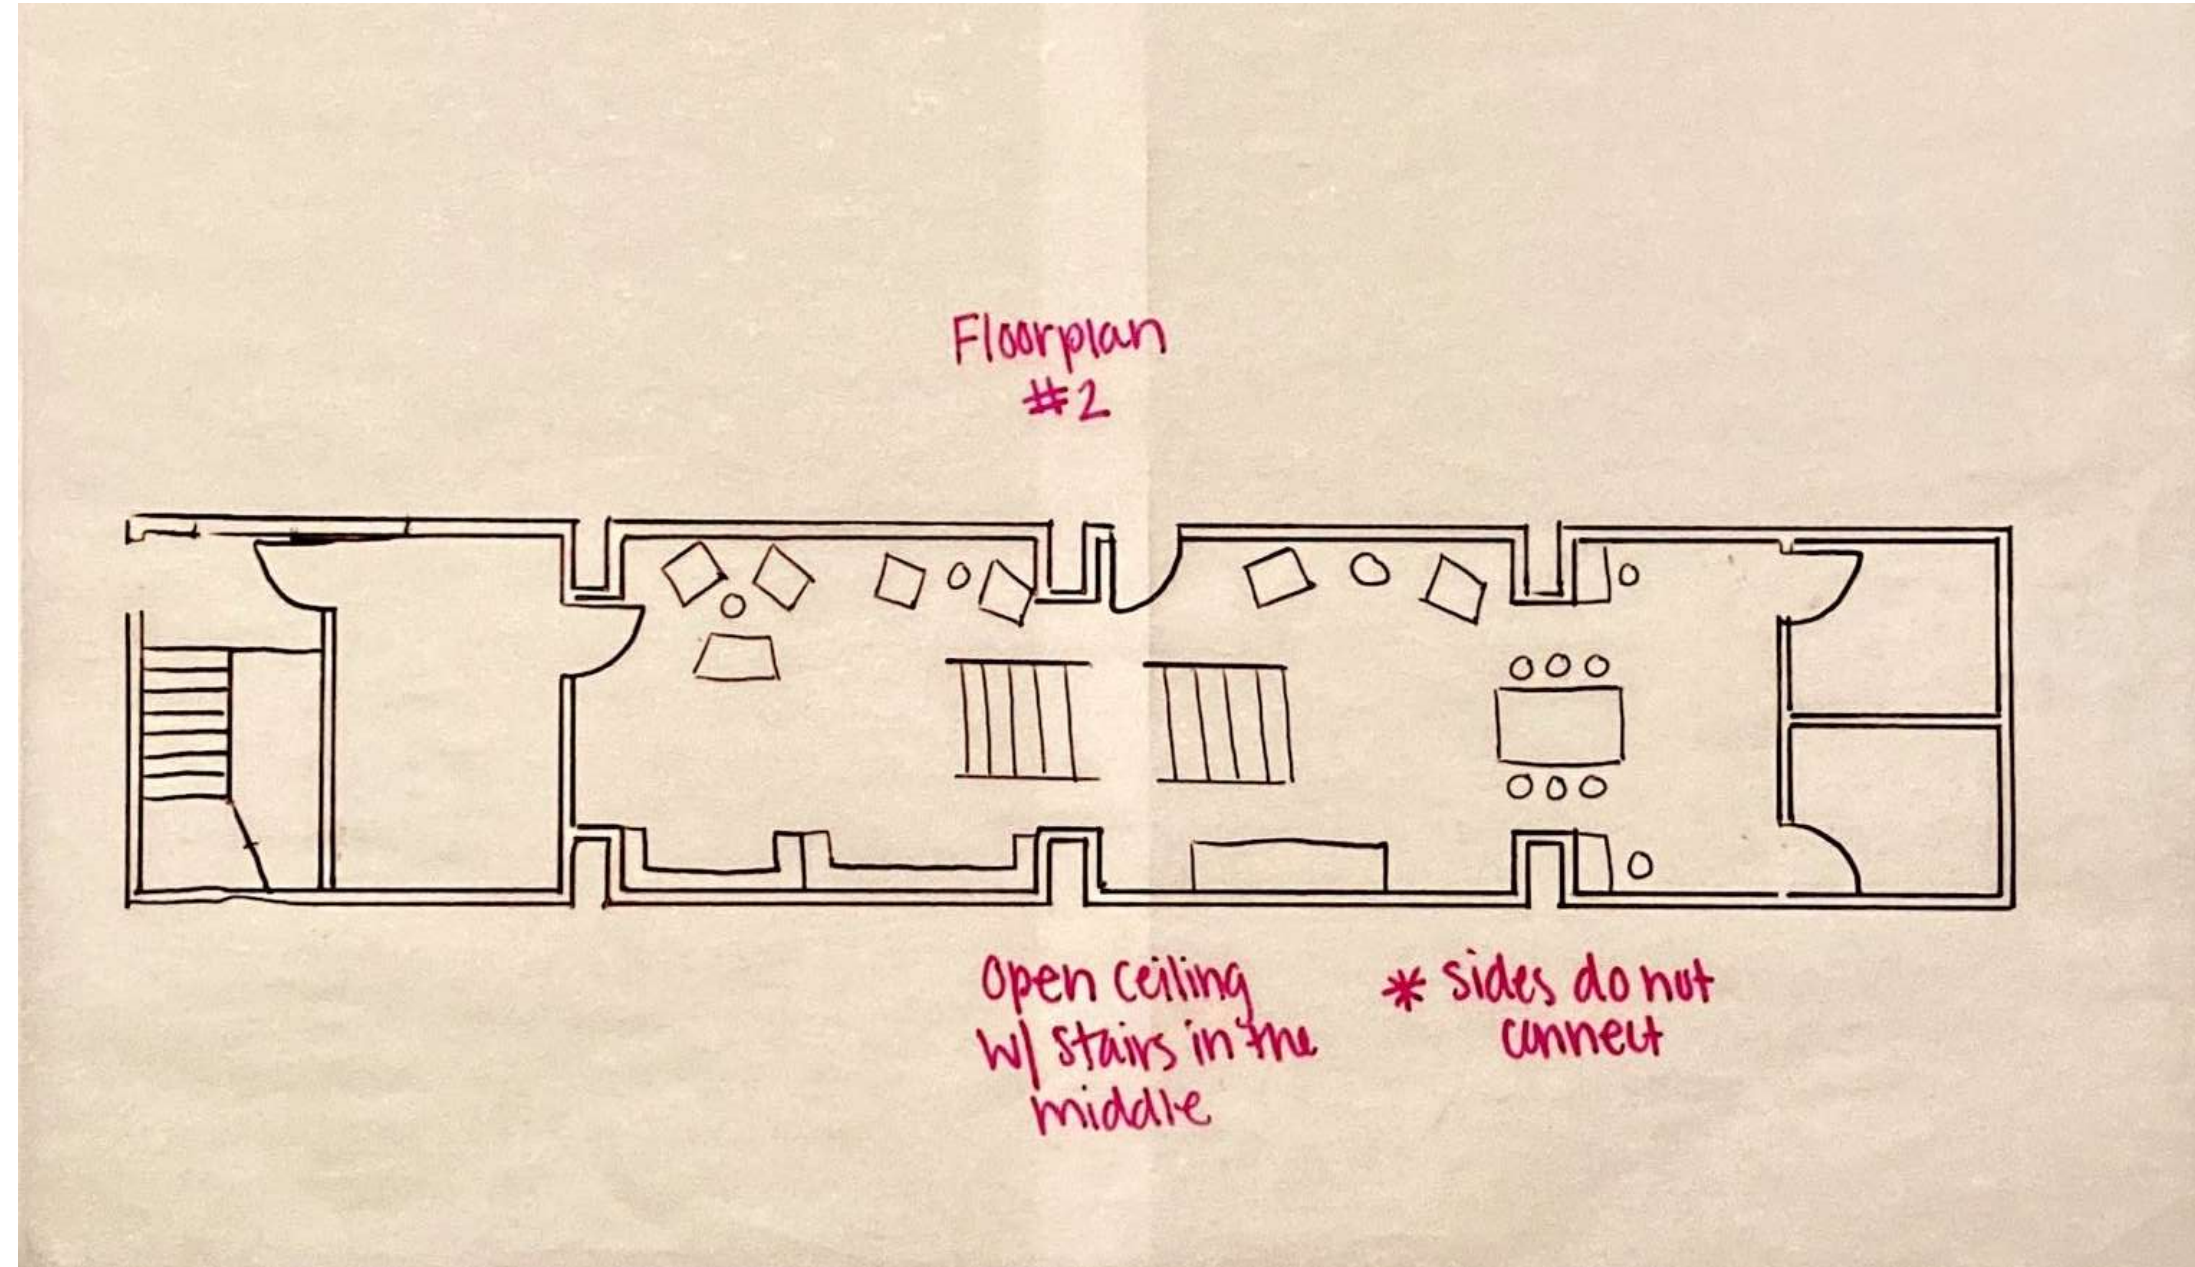 Floorplan
#2
Open ceiling
w/ stairs in the
middle
* sides do not
connect